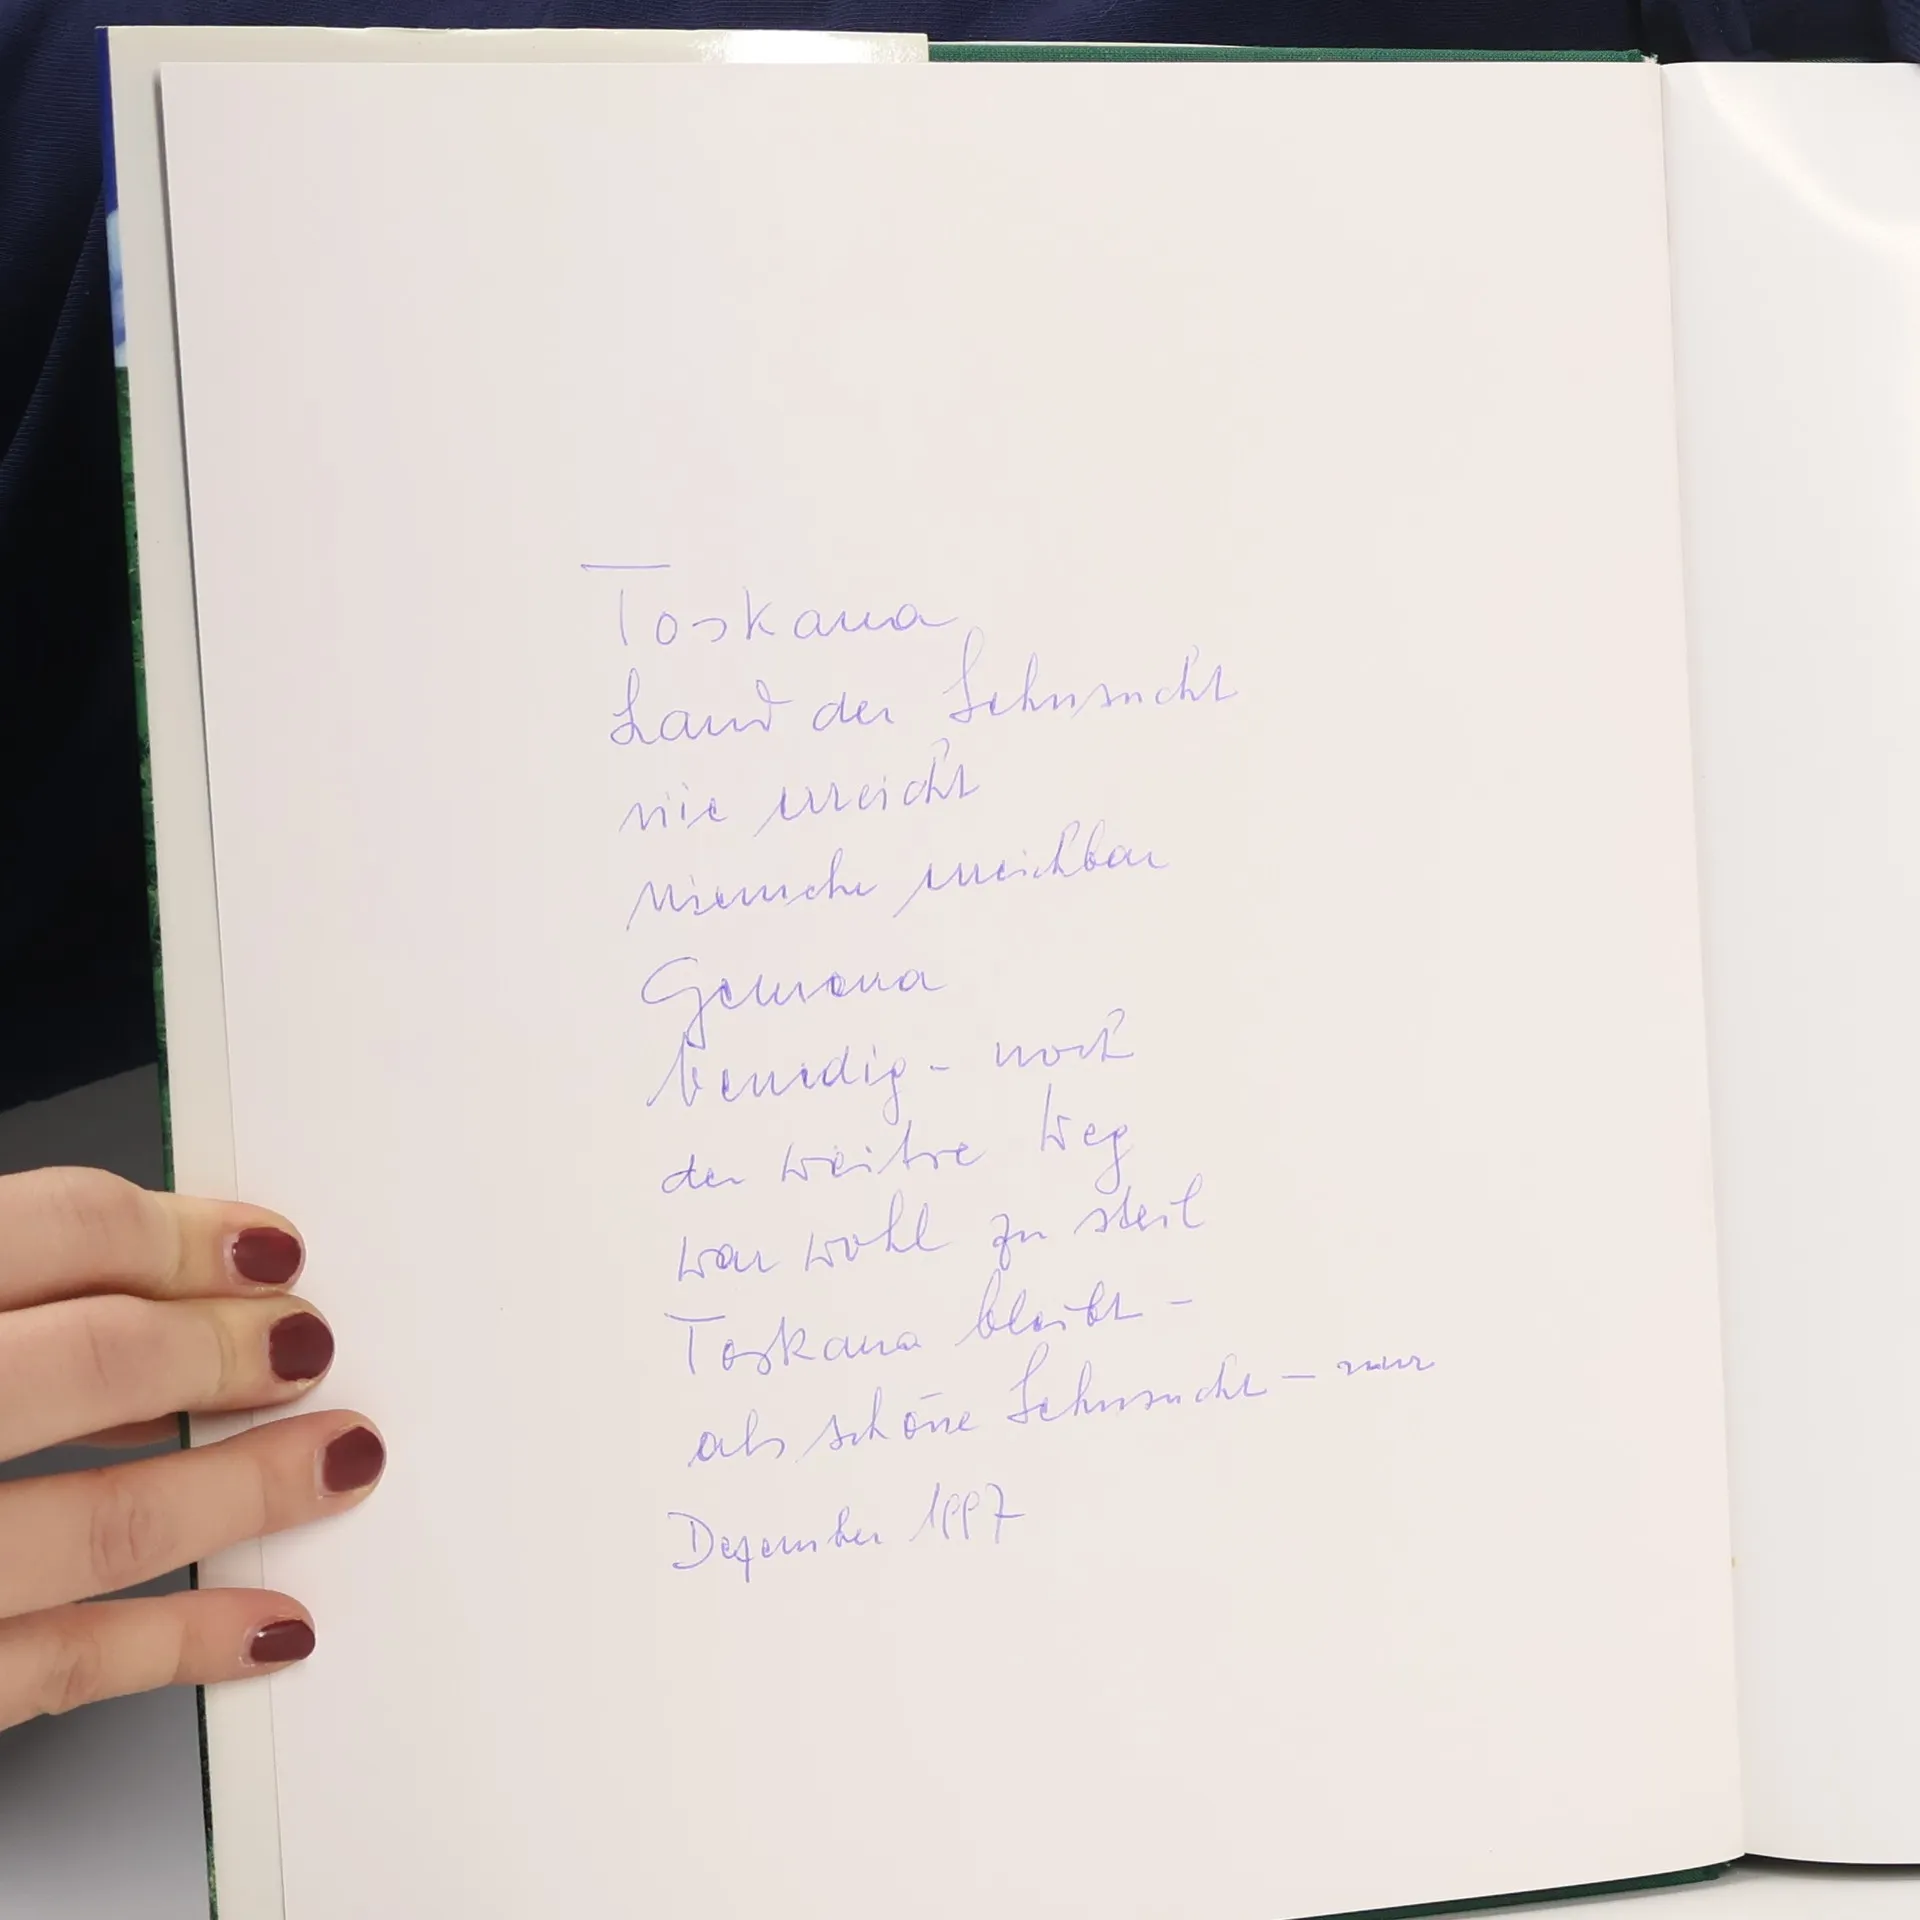 Toskana
Land der Sehnsucht
nie erreicht
erreichbar
Gemona
Venedig - noch
der weitre Weg
war wohl zu steil
Toskana bleibt -
als schöne Sehnsucht - nur
Dezember 1997